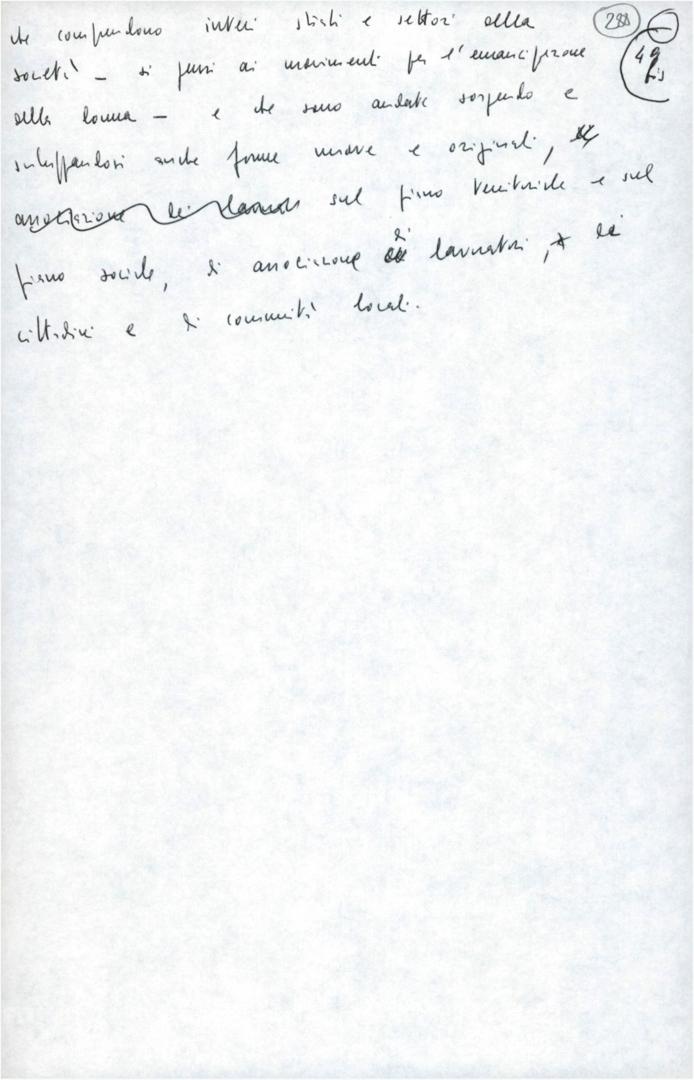 288
49 bis
che comprendono interi strati e settori della
società - si pensi ai movimenti per l'emancipazione
della donna - e che sono andate sorgendo e
sviluppandosi anche forme nuove e originali,
associazione dei lavorat sul piano territoriale e sul
piano sociale, di associazione di lavoratori, di
cittadini e di comunità locali.